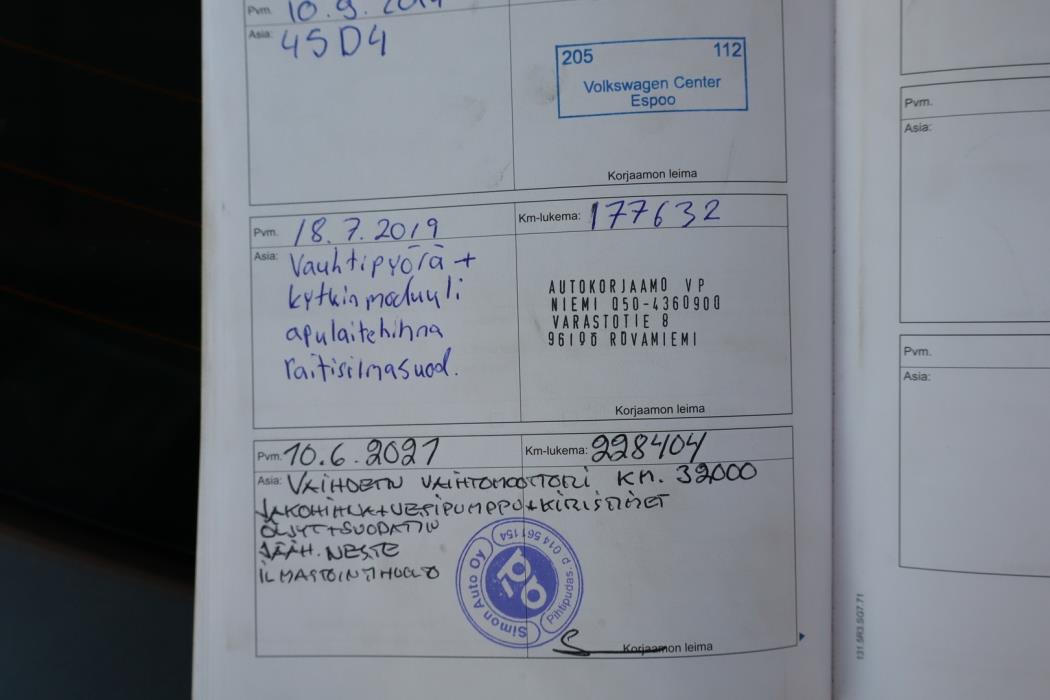 Pvm. 10.9.2014
Asia: 4SD4
205 112
Volkswagen Center
Espoo
Korjaamon leima
Pvm. 18.7.2019
Km-lukema: 177632
Asia: Vauhtipyörä +
kytkinmoduuli
apulaitehihna
raitisilmasuod.
AUTOKORJAAMO VP
NIEMI 050-4360900
VARASTOTIE 8
96100 ROVANIEMI
Korjaamon leima
Pvm. 10.6.2021
Km-lukema: 228404
Asia: VAIHDETTU VAIHTOMOOTTORI KM. 32000
JAKOHIHNA+VESIPUMPPU+KIRISTIMET
ÖLJYT+SUODATIN
JÄÄH. NESTE
ILMASTOINTIHUOLTO
Simon Auto Oy
Pihtipudas. p. 014 561 154
Korjaamon leima
Pvm.
Asia:
Pvm.
Asia:
131.5R3.SG7.71